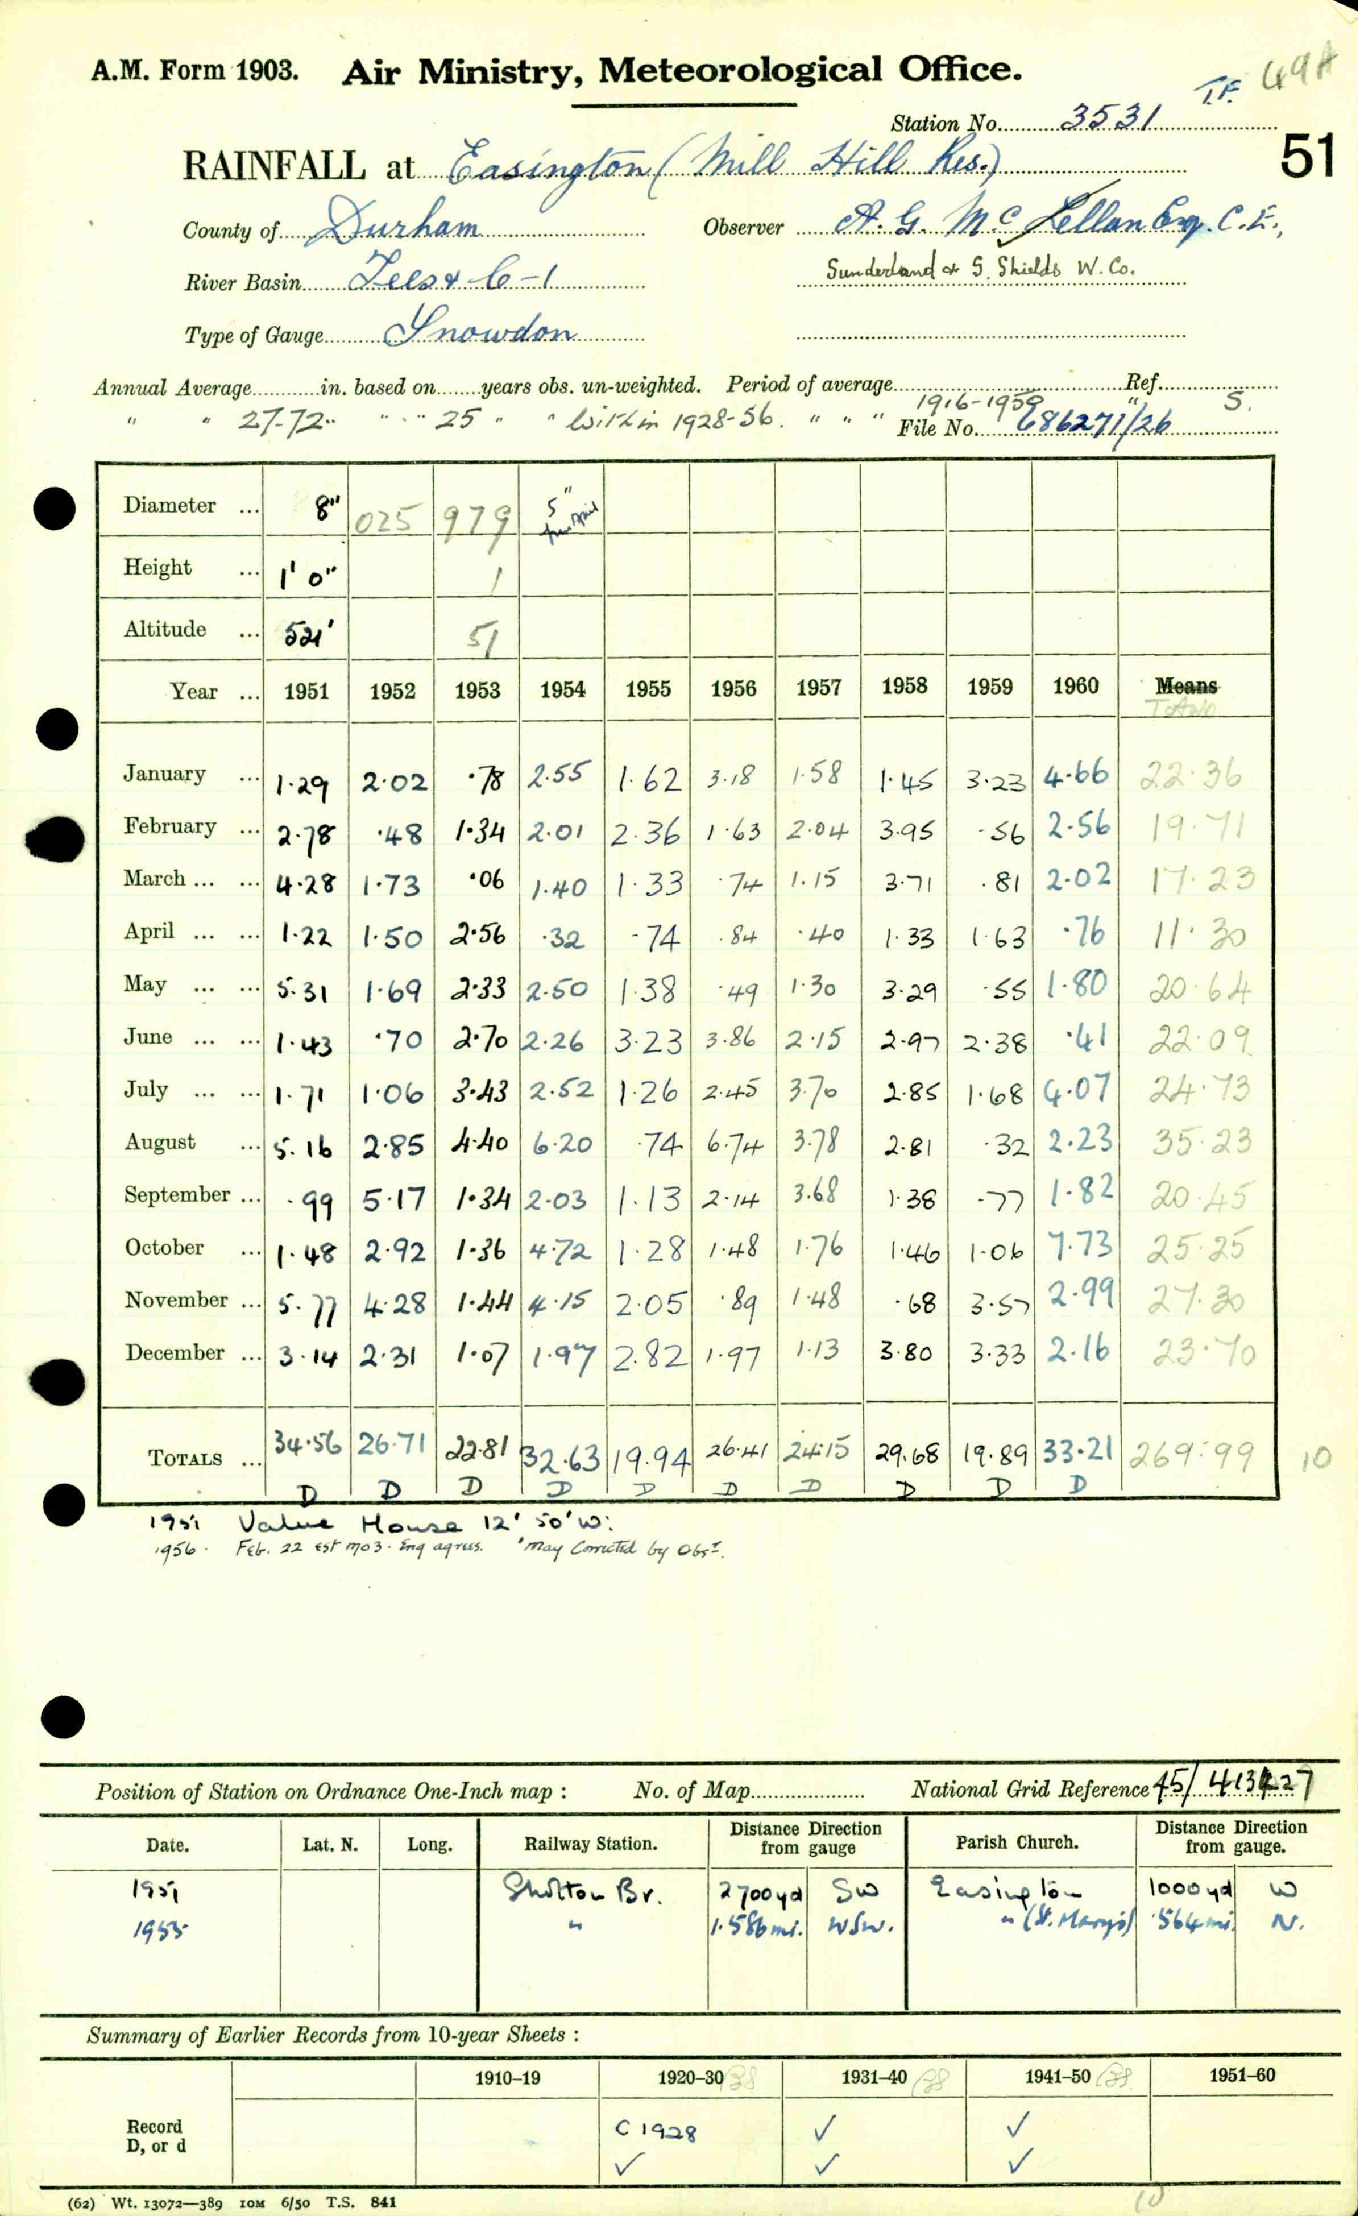 A.M. Form 1903. Air Ministry, Meteorological Office. T.F. 49A
Station No. 3531
RAINFALL at Easington (Mill Hill Res.) 51
County of Durham Observer A. G. McLellan Esq. C.E.,
River Basin Tees & C-1 Sunderland & S. Shields W. Co.
Type of Gauge Snowdon
Annual Average in. based on years obs. un-weighted. Period of average Ref.
" " 27.72 " " 25 " " Within 1928-56. " " " 1916-1950 " S.
File No. 686271/26
Diameter ... 8" 025 979 5" from April
Height ... 1' 0" 1
Altitude ... 521' 51
Year ... 1951 1952 1953 1954 1955 1956 1957 1958 1959 1960 Means
January ... 1.29 2.02 .78 2.55 1.62 3.18 1.58 1.45 3.23 4.66 22.36
February ... 2.78 .48 1.34 2.01 2.36 1.63 2.04 3.95 .56 2.56 19.71
March ... ... 4.28 1.73 .06 1.40 1.33 .74 1.15 3.71 .81 2.02 17.23
April ... ... 1.22 1.50 2.56 .32 .74 .84 .40 1.33 1.63 .76 11.30
May ... ... 5.31 1.69 2.33 2.50 1.38 .49 1.30 3.29 .55 1.80 20.64
June ... ... 1.43 .70 2.70 2.26 3.23 3.86 2.15 2.97 2.38 .41 22.09
July ... ... 1.71 1.06 3.43 2.52 1.26 2.45 3.70 2.85 1.68 4.07 24.73
August ... 5.16 2.85 4.40 6.20 .74 6.74 3.78 2.81 .32 2.23 35.23
September ... .99 5.17 1.34 2.03 1.13 2.14 3.68 1.38 .77 1.82 20.45
October ... 1.48 2.92 1.36 4.72 1.28 1.48 1.76 1.46 1.06 7.73 25.25
November ... 5.77 4.28 1.44 4.15 2.05 .89 1.48 .68 3.57 2.99 27.30
December ... 3.14 2.31 1.07 1.97 2.82 1.97 1.13 3.80 3.33 2.16 23.70
TOTALS ... 34.56 26.71 22.81 32.63 19.94 26.41 24.15 29.68 19.89 33.21 269.99 10
D D D D D D D D D D
1951 Valve House 12' 50' W.
1956. Feb. 22 est m03. Eng agrees. 'May Corrected by Obsr.
Position of Station on Ordnance One-Inch map : No. of Map National Grid Reference 45/ 413427
Date. Lat. N. Long. Railway Station. Distance from gauge Direction Parish Church. Distance from gauge. Direction
1951 Shotton Br. 2700yd SW Easington 1000yd W
1955 " 1.586mi. WSW. " (St. Mary's) .564mi. N.
Summary of Earlier Records from 10-year Sheets :
1910–19 1920–30 1931–40 1941–50 1951–60
Record C 1928 ✓ ✓
D, or d ✓ ✓ ✓
(62) Wt. 13072—389 10M 6/50 T.S. 841 10